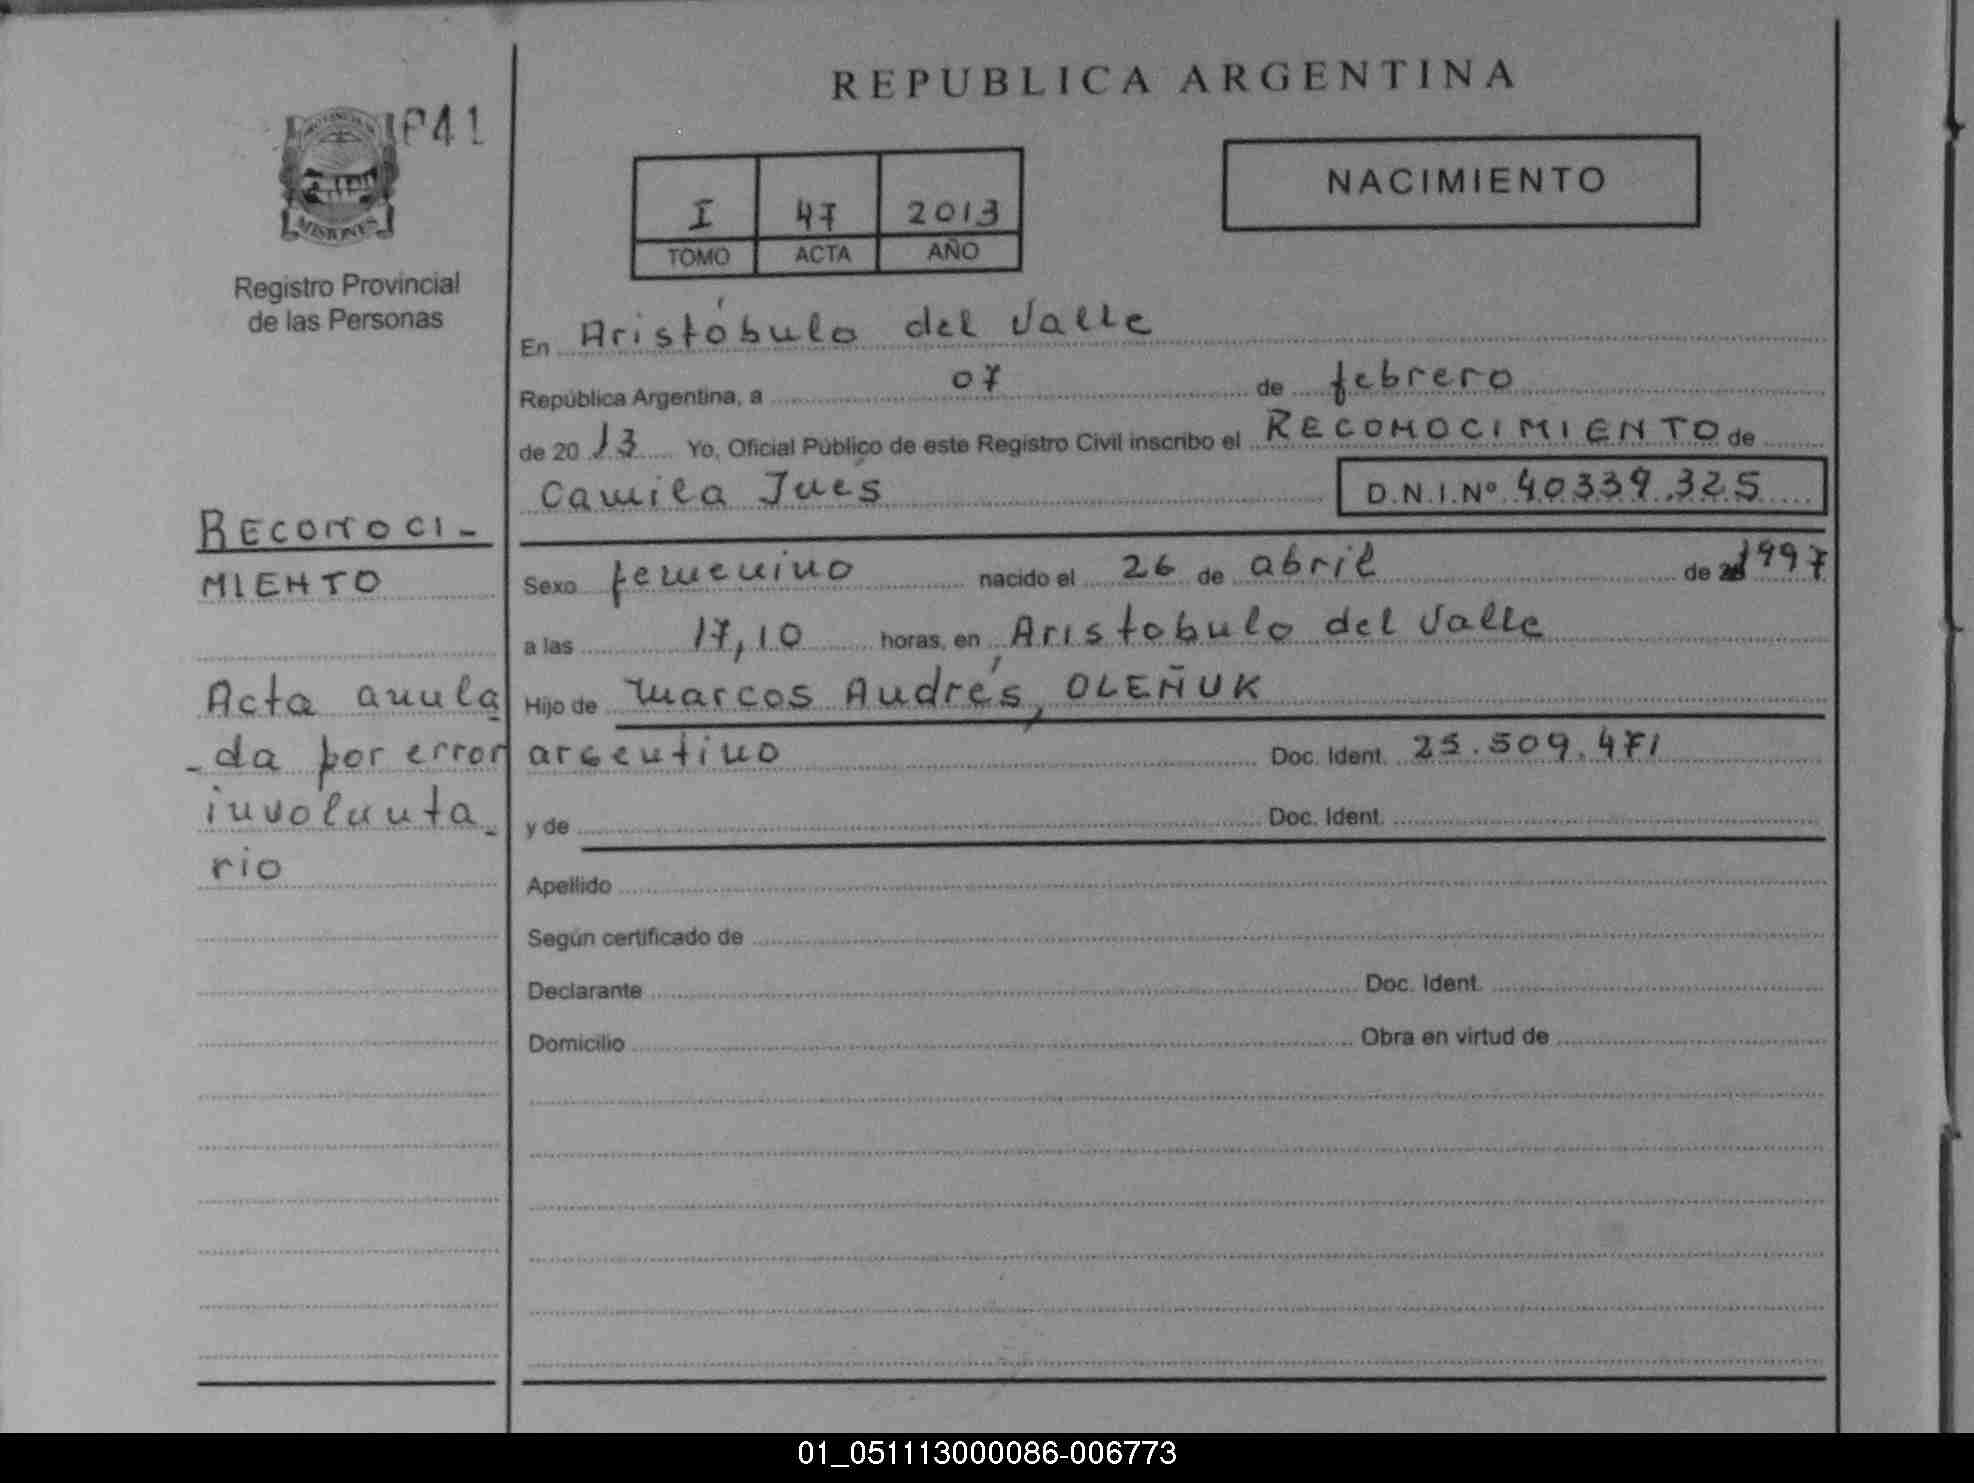 REPUBLICA ARGENTINA
P41
PROVINCIA DE
MISIONES
Registro Provincial
de las Personas
NACIMIENTO
I 47 2013
TOMO ACTA AÑO
En Aristóbulo del Valle
República Argentina, a 07 de febrero
de 20 13 Yo, Oficial Público de este Registro Civil inscribo el RECONOCIMIENTO de
Camila Inés D.N.I.Nº 40339.325
Sexo femenino nacido el 26 de abril de 1997
a las 17,10 horas, en Aristóbulo del Valle
Hijo de Marcos Andrés, OLEÑUK
argentino Doc. Ident. 25.509.471
y de Doc. Ident.
Apellido
Según certificado de
Declarante Doc. Ident.
Domicilio Obra en virtud de
RECONOCI-
MIENTO
Acta anula
-da por error
involunta-
rio
01_051113000086-006773